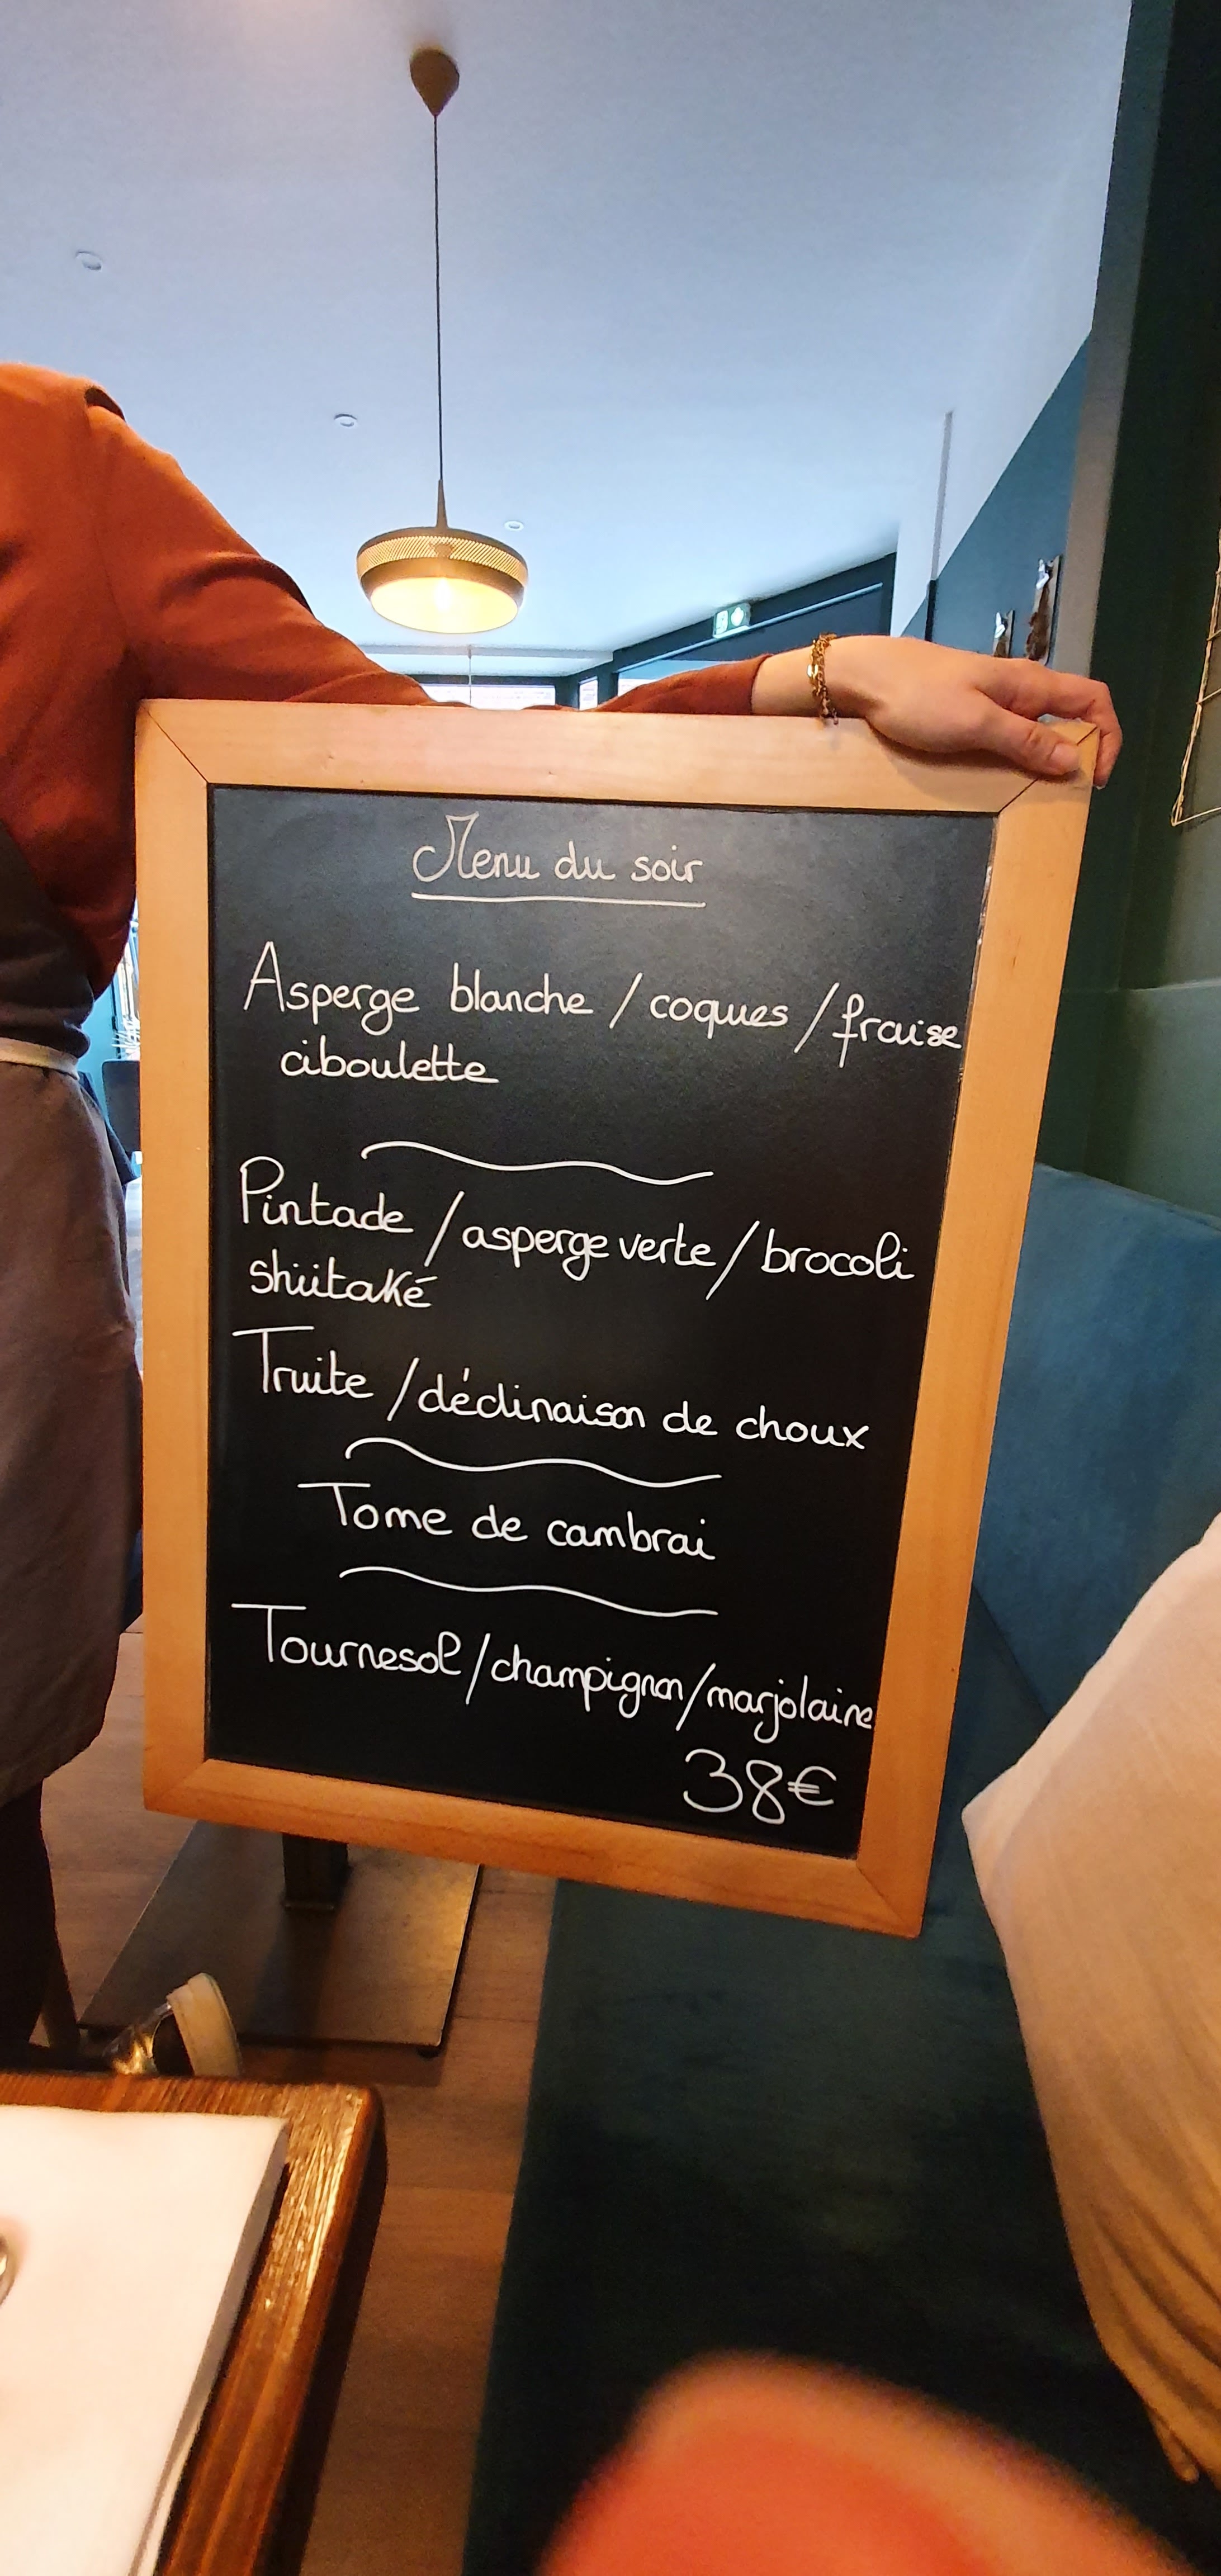 Menu du soir
Asperge blanche / coques / fraise
ciboulette
Pintade / asperge verte / brocoli
shiitaké
Truite / déclinaison de choux
Tome de cambrai
Tournesol / champignon / marjolaine
38€